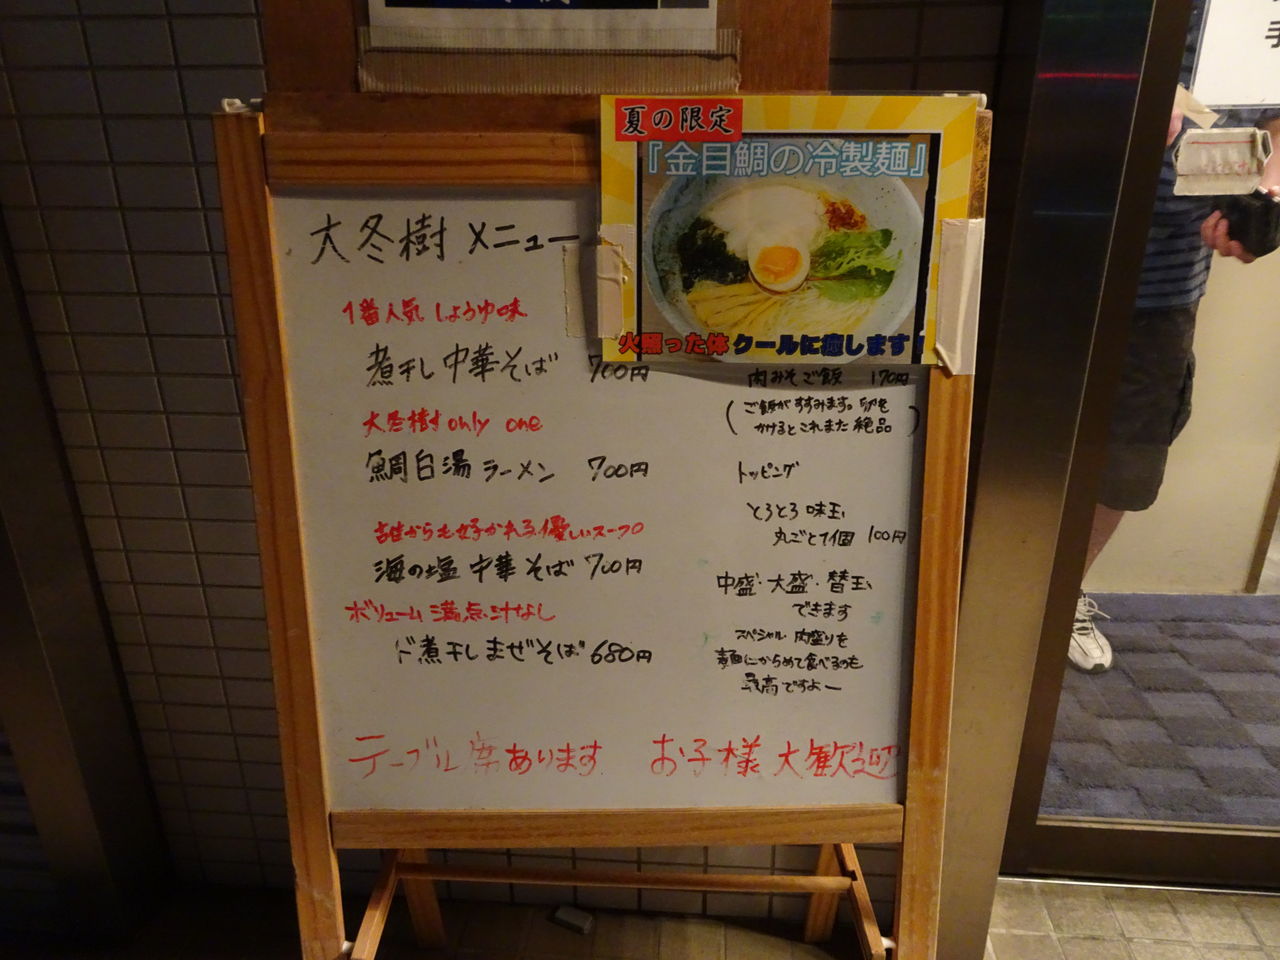 夏の限定
「金目鯛の冷製麺」
火照った体 クールに癒します！
大冬樹 メニュー
1番人気 しょうゆ味
煮干し中華そば 700円
大冬樹 only one
鯛白湯ラーメン 700円
誰からも好かれる優しいスープ
海の塩 中華そば 700円
ボリューム満点汁なし
ド煮干しまぜそば 680円
肉みそご飯 170円
(ご飯がすすみます。卵を
かけるとこれまた絶品)
トッピング
とろとろ味玉
丸ごと1個 100円
中盛・大盛・替玉
できます
スペシャル 肉盛りを
麺にからめて食べるのも
最高ですよー
テーブル席あります お子様大歓迎